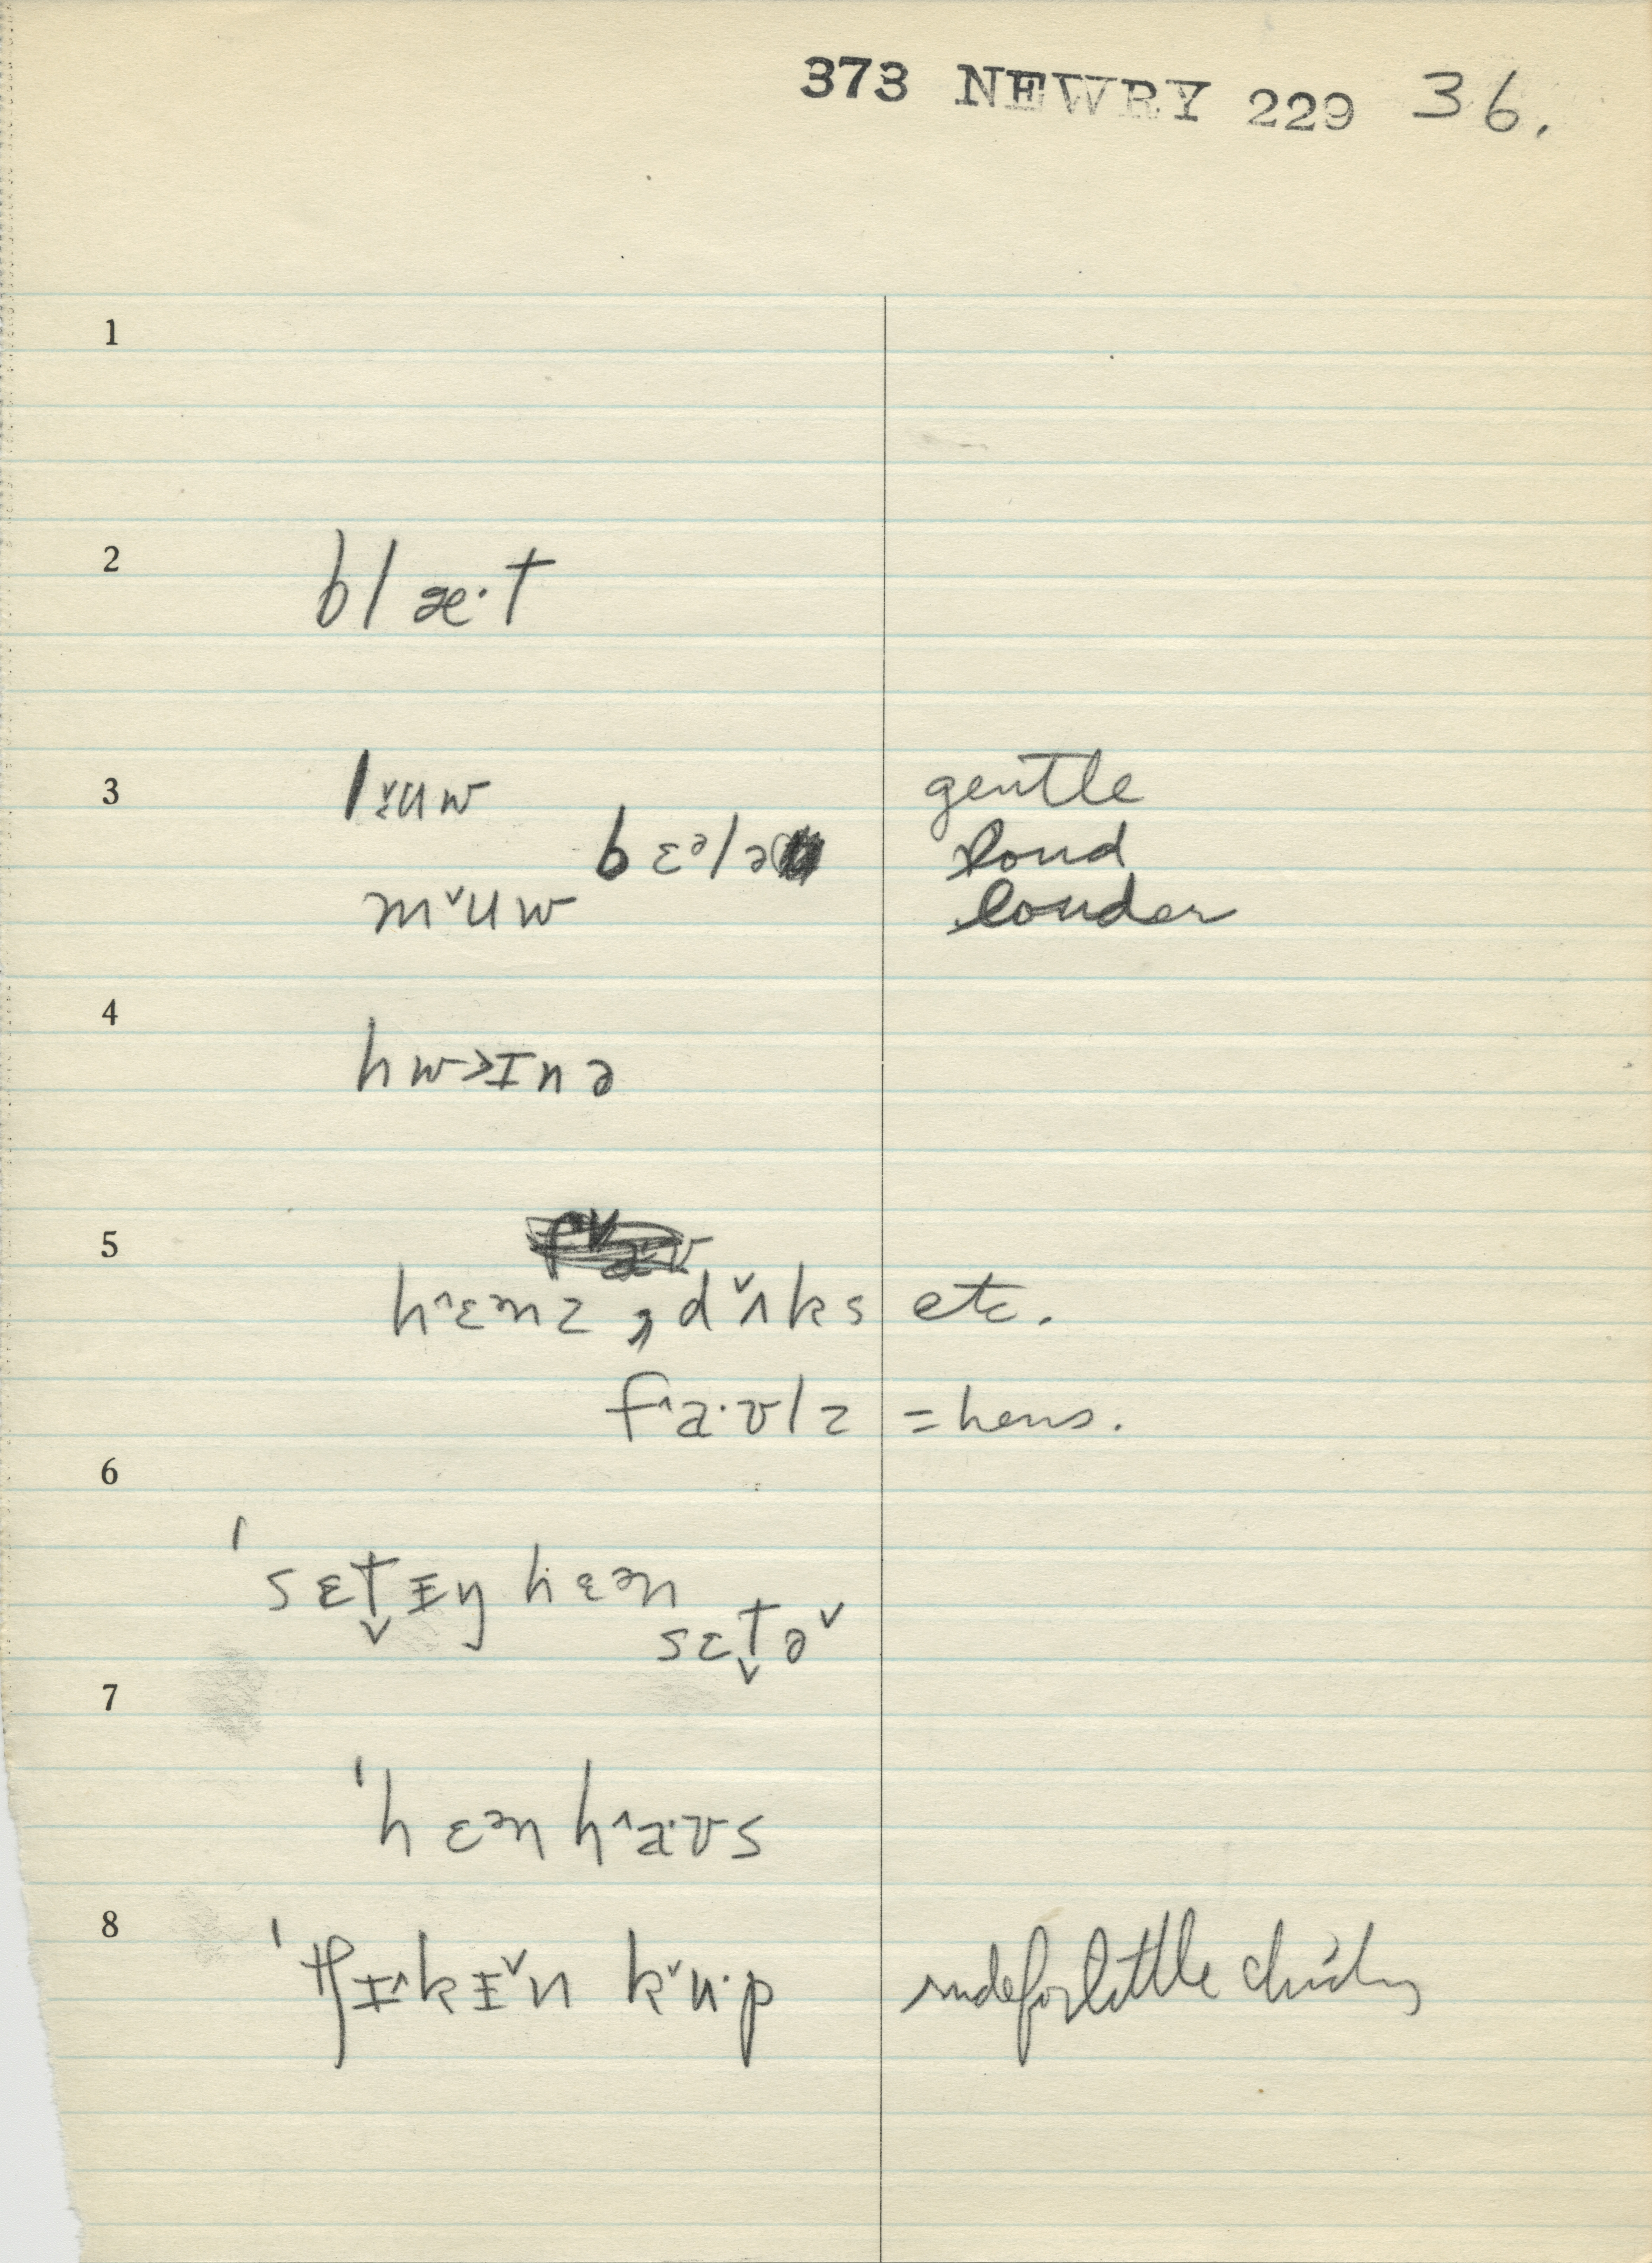 373 NEWRY 229 36.
1
2
blæ·t
3
lˬuw gentle
bɛᵊlə loud
mˇuw louder
4
hw>ɪnə
5
hˆɛᵊnz, dˇʌks etc.
fˆa·ʊlz = hens.
6
ˈsɛt̬ɪy hɛᵊn
sɛt̬əˇ
7
ˈhɛᵊnhˆa·ʊs
8
ˈtʃɪˆkɪˇn kˇu·p made for little chicks